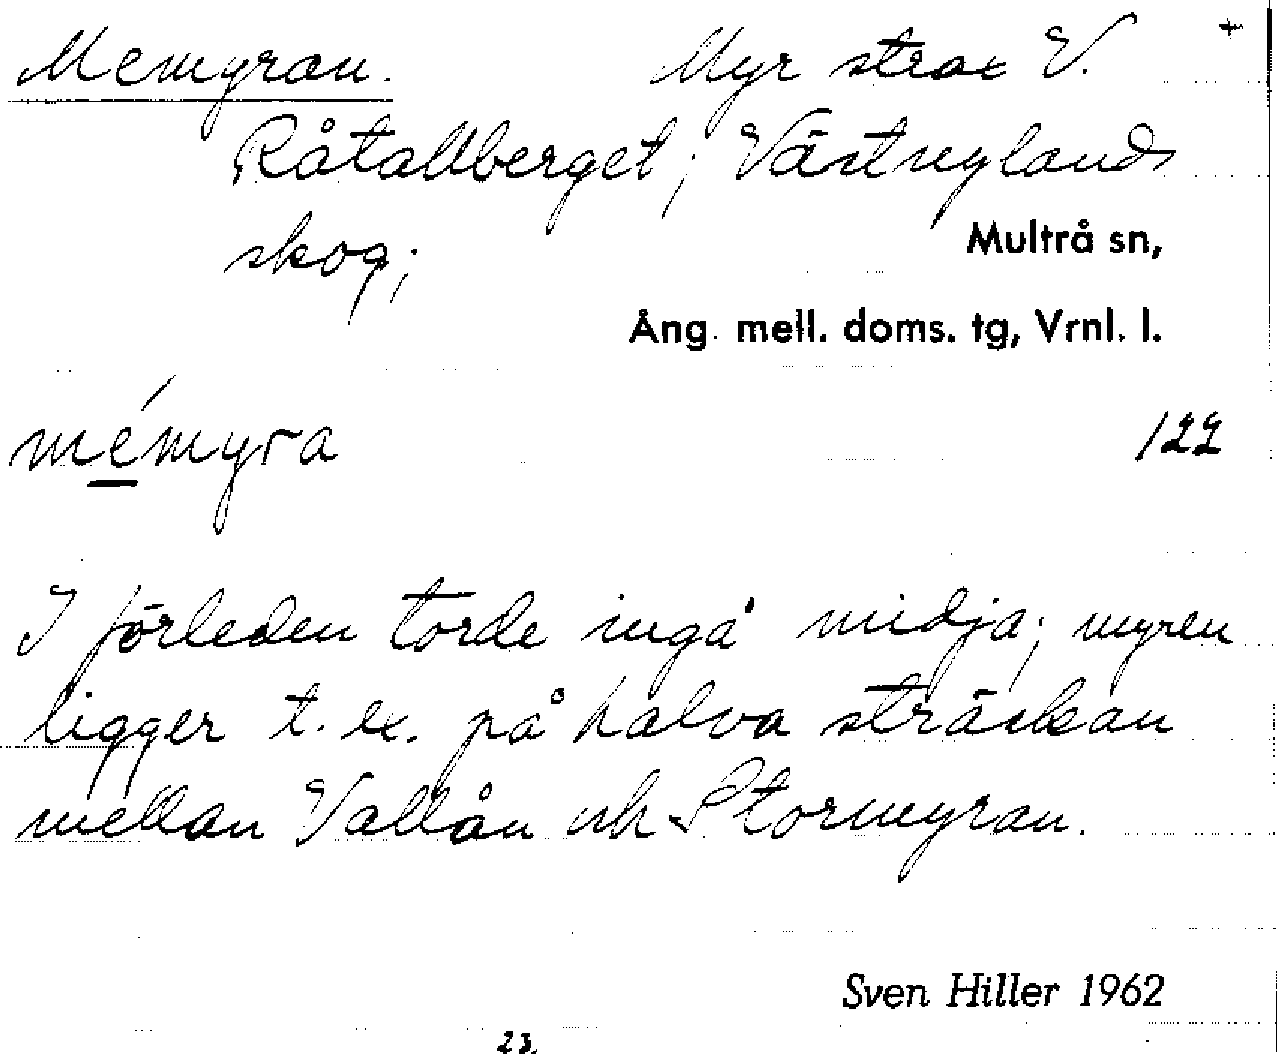 Memyran. Myr strax V. +
Råtallberget, Västnylands
skog;
Multrå sn,
Ång. mell. doms. tg, Vrnl. l.
mémyra 122
I förleden torde ingå midja; myren
ligger t. ex. på halva sträckan
mellan Vallån och Stormyran.
Sven Hiller 1962
23.